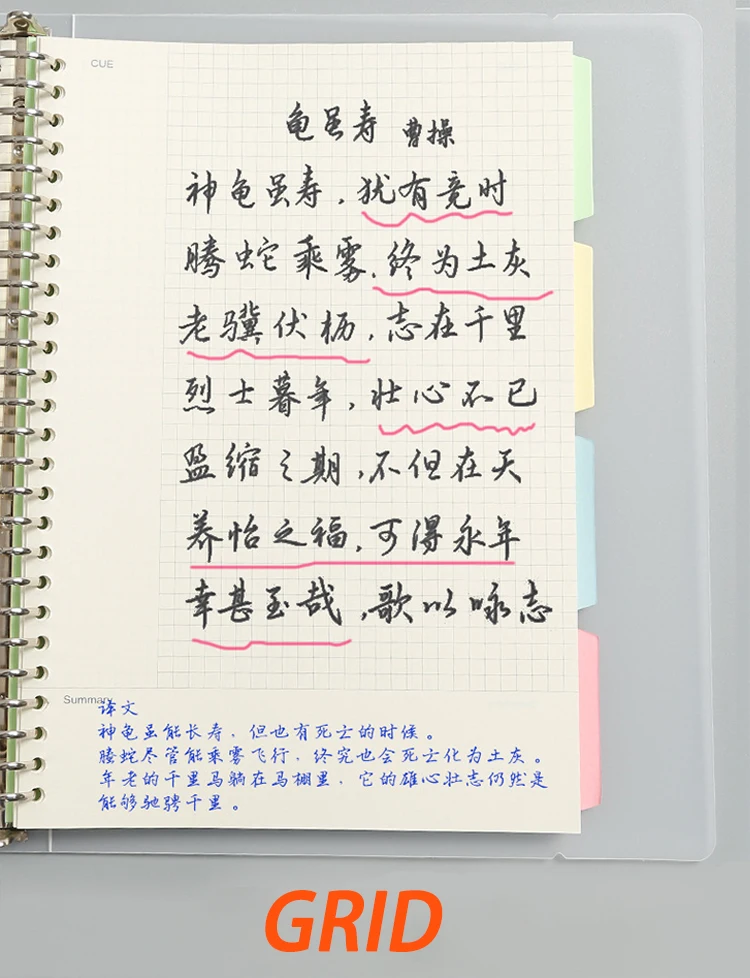 CUE
龟虽寿 曹操
神龟虽寿,犹有竟时
腾蛇乘雾.终为土灰
老骥伏枥,志在千里
烈士暮年,壮心不已
盈缩之期,不但在天
养怡之福,可得永年
幸甚至哉,歌以咏志
Summary
译文
神龟虽能长寿,但也有死亡的时候。
腾蛇尽管能乘雾飞行,终究也会死亡化为土灰。
年老的千里马躺在马棚里,它的雄心壮志仍然是
能够驰骋千里。
GRID